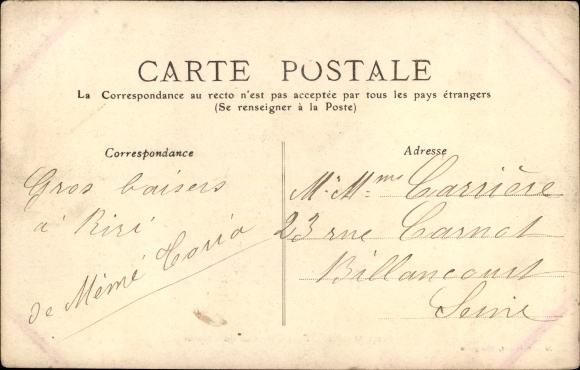 CARTE POSTALE
La Correspondance au recto n'est pas acceptée par tous les pays étrangers
(Se renseigner à la Poste)
Correspondance
Adresse
Gros baisers
à Riri
de Mémé
Mr Mme Carrière
23 rue Carnot
Billancourt
Seine